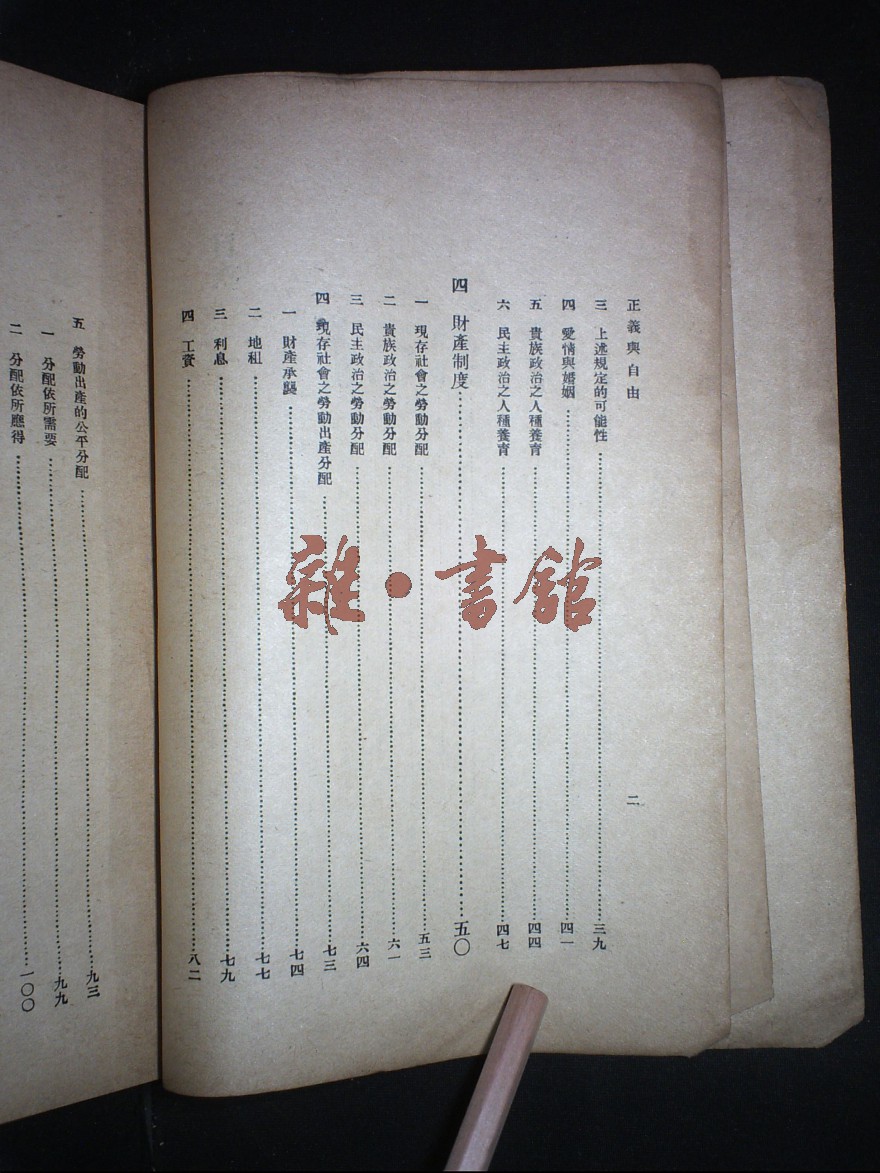 正義與自由
二
三 上述規定的可能性……三九
四 愛情與婚姻……四一
五 貴族政治之人種養育……四四
六 民主政治之人種養育……四七
四 財產制度……五〇
一 現存社會之勞動分配……五三
二 貴族政治之勞動分配……六一
三 民主政治之勞動分配……六四
四 現存社會之勞動出產分配……七三
一 財產承襲……七四
二 地租……七七
三 利息……七九
四 工資……八二
五 勞動出產的公平分配……九三
一 分配依所需要……九九
二 分配依所應得……一〇〇
雜·書館